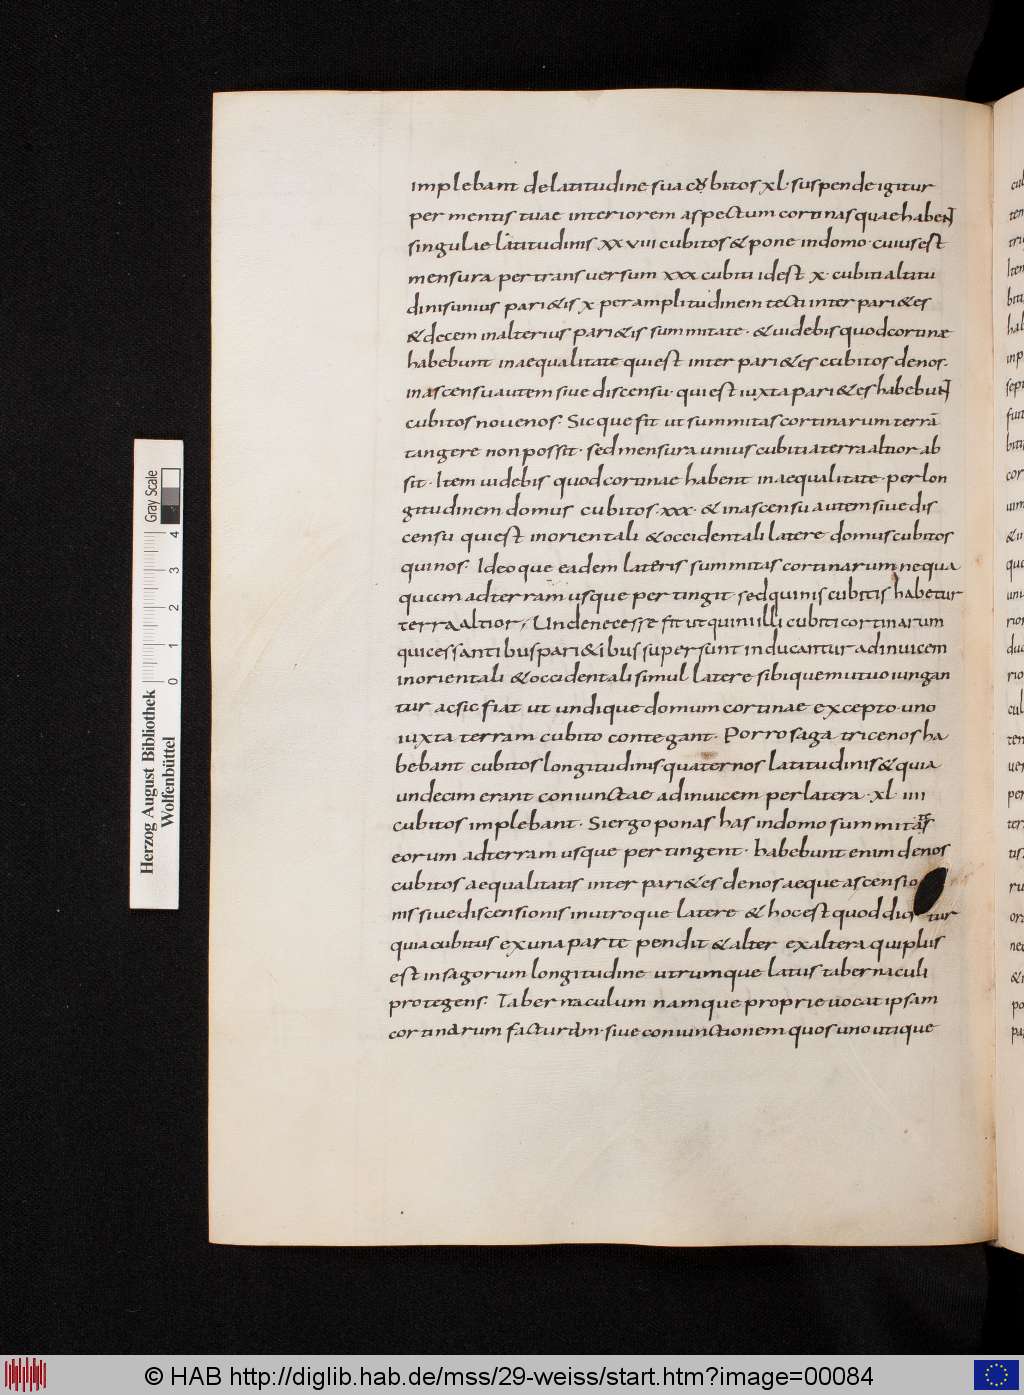 implebant delatitudine sua cubitos xl· suspende igitur
per mentis tuae interiorem aspectum cortinas quae habent
singulae latitudinis xxviii cubitos & pone indomo· cuius est
mensura per transuersum xxx cubiti idest x· cubiti altitu
dinis unius pari&is x per amplitudinem tecti inter pari&es
& decem inalterius pari&is summitate· & uidebis quod cortinæ
habebunt inaequalitate qui est inter pari&es cubitos denos·
inascensu autem siue discensu· qui est iuxta pari&es habebunt
cubitos nouenos· Sicque fit ut summitas cortinarum terrā
tangere non possit· sed mensura unius cubiti aterra altior ab
sit· Item uidebis quod cortinae habent inaequalitate· per lon
gitudinem domus cubitos· xxx· & inascensu autem siue dis
censu qui est inorientali & occidentali latere domus cubitos
quinos· Ideoque eadem lateris summitas cortinarum nequa
quam adterram usque pertingit· sed quinis cubitis habetur
terra altior· Unde necesse fit ut quini illi cubiti cortinarum
qui cessantibus pari&ibus supersunt inducantur adinuicem
inorientali & occidentali simul latere sibique mutuo iungan
tur ac sic fiat ut undique domum cortinae excepto uno
iuxta terram cubito contegant· Porro saga tricenos ha
bebant cubitos longitudinis quaternos latitudinis & quia
undecim erant coniunctae adinuicem per latera· xl iiii
cubitos implebant· Si ergo ponas has indomo summitas
eorum adterram usque pertingent· habebunt enim denos
cubitos aequalitatis inter pari&es denos aeque ascensio
nis siue discensionis inutroque latere & hoc est quod dici tur
quia cubitus ex una parte pendit & alter ex altera qui plus
est insagorum longitudine utrumque latus tabernaculi
protegens· Tabernaculum namque proprie uocat ipsam
cortinarum facturam· siue coniunctionem quos uno utique
Herzog August Bibliothek
Wolfenbüttel
Gray Scale
0 1 2 3 4
© HAB http://diglib.hab.de/mss/29-weiss/start.htm?image=00084